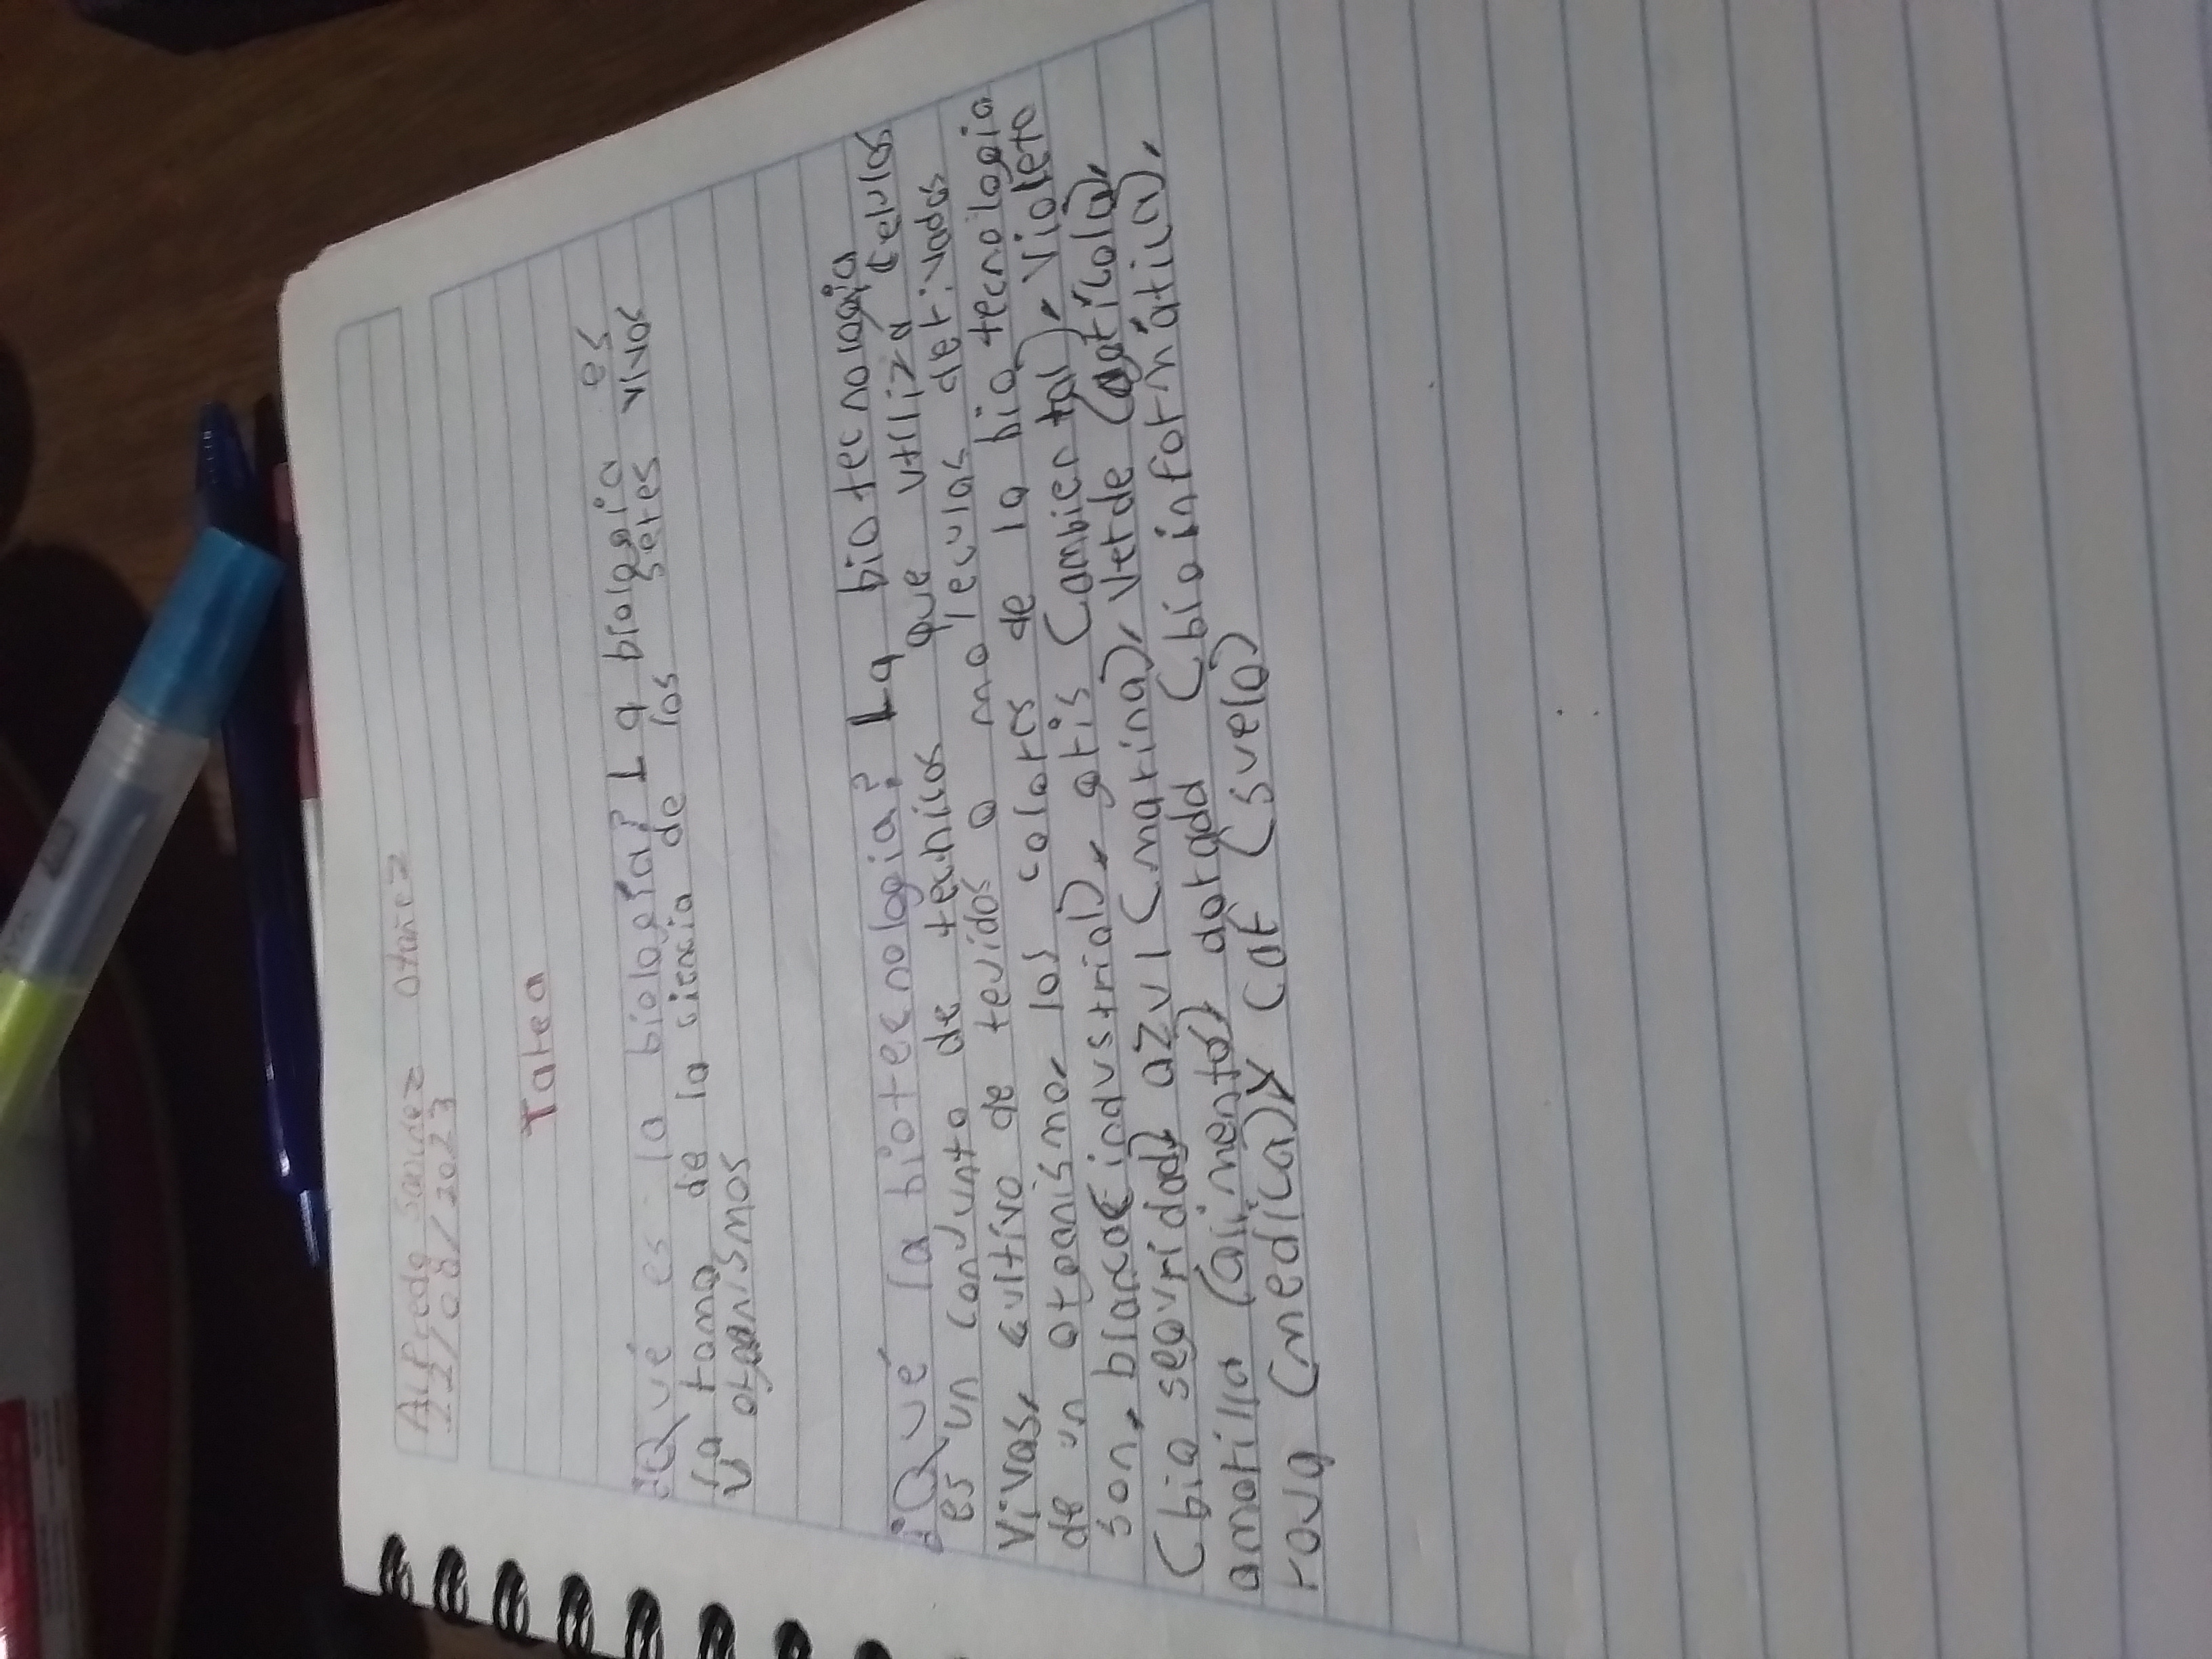 Alfredo Sanchez Otañez
22/08/2023
Tarea
¿Qué es la biología? La biología es
la rama de la ciencia de los seres vivos
y organismos
¿Qué la biotecnologia? La biotecnologia
es un conjunto de technicas que utiliza celulas
vivas, cultivo de tejidos o moleculas derivadas
de un organismo, los colores de la bio tecnologia
son, blanca (industrial), gris (ambiental), violeta
(bio seguridad) azul (marina), verde (agrícola),
amarilla (alimentos) dorada (bio informática),
roja (medica) y caf (suelo)